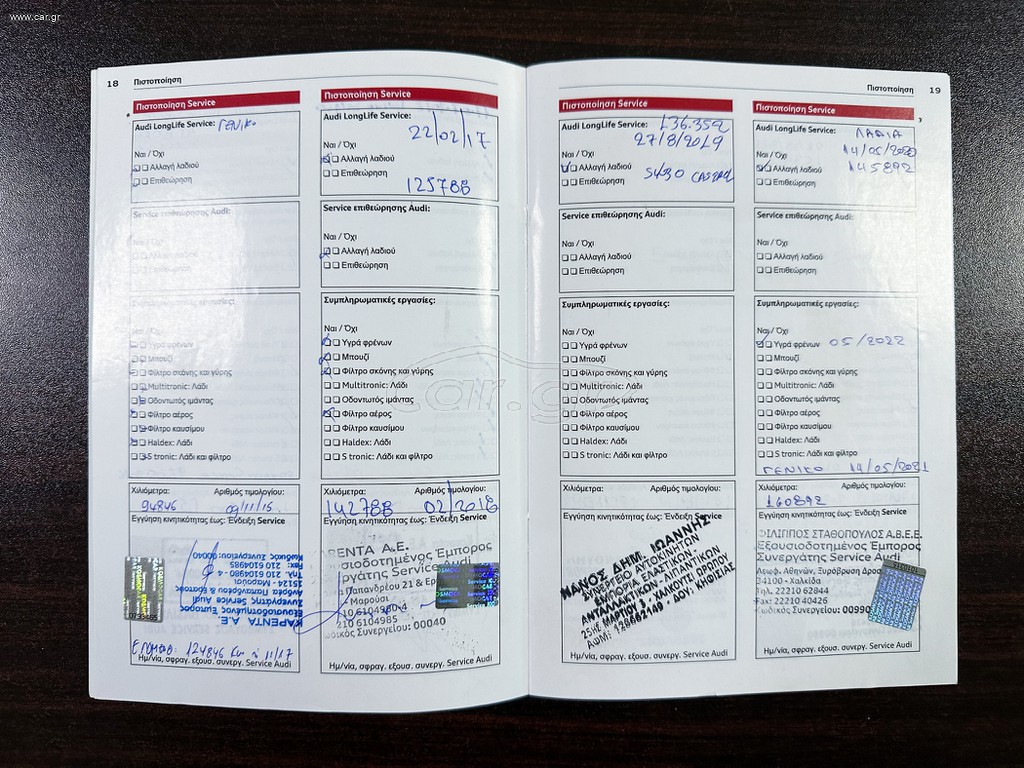 www.car.gr
18 Πιστοποίηση
Πιστοποίηση Service
Audi LongLife Service: ΓΕΝΙΚΟ
Ναι / Όχι
Αλλαγή λαδιού
Επιθεώρηση
Service επιθεώρησης Audi:
Ναι / Όχι
Αλλαγή λαδιού
Επιθεώρηση
Συμπληρωματικές εργασίες:
Ναι / Όχι
Υγρά φρένων
Μπουζί
Φίλτρο σκόνης και γύρης
Multitronic: Λάδι
Οδοντωτός ιμάντας
Φίλτρο αέρος
Φίλτρο καυσίμου
Haldex: Λάδι
S tronic: Λάδι και φίλτρο
Χιλιόμετρα: Αριθμός τιμολογίου:
94846 09/11/15
Εγγύηση κινητικότητας έως: Ένδειξη Service
ΚΑΡΕΝΤΑ Α.Ε.
Εξουσιοδοτημένος Έμπορος
Συνεργάτης Service Audi
Ανδρέα Παπανδρέου 21 & Ερατούς
15124 - Μαρούσι
Τηλ. 210 6104980-4
Fax: 210 6104985
Κωδικός Συνεργείου: 00040
ΕΠΟΜΕΝΟ: 124846 Km ή 11/17
Ημ/νία, σφραγ. εξουσ. συνεργ. Service Audi
Πιστοποίηση Service
Audi LongLife Service:
22/02/17
Ναι / Όχι
Αλλαγή λαδιού
Επιθεώρηση
125788
Service επιθεώρησης Audi:
Ναι / Όχι
Αλλαγή λαδιού
Επιθεώρηση
Συμπληρωματικές εργασίες:
Ναι / Όχι
Υγρά φρένων
Μπουζί
Φίλτρο σκόνης και γύρης
Multitronic: Λάδι
Οδοντωτός ιμάντας
Φίλτρο αέρος
Φίλτρο καυσίμου
Haldex: Λάδι
S tronic: Λάδι και φίλτρο
car.gr
Χιλιόμετρα: Αριθμός τιμολογίου:
142788 02/2018
Εγγύηση κινητικότητας έως: Ένδειξη Service
ΡΕΝΤΑ Α.Ε.
υσιοδοτημένος Έμπορος
ργάτης Service Audi
Παπανδρέου 21 & Ερ
Μαρούσι
10 6104980-4
210 6104985
δικός Συνεργείου: 00040
Ημ/νία, σφραγ. εξουσ. συνεργ. Service Audi
Πιστοποίηση 19
Πιστοποίηση Service
Audi LongLife Service: 136.359
27/8/2019
Ναι / Όχι
Αλλαγή λαδιού
Επιθεώρηση
5W30 CASTROL
Service επιθεώρησης Audi:
Ναι / Όχι
Αλλαγή λαδιού
Επιθεώρηση
Συμπληρωματικές εργασίες:
Ναι / Όχι
Υγρά φρένων
Μπουζί
Φίλτρο σκόνης και γύρης
Multitronic: Λάδι
Οδοντωτός ιμάντας
Φίλτρο αέρος
Φίλτρο καυσίμου
Haldex: Λάδι
S tronic: Λάδι και φίλτρο
Χιλιόμετρα: Αριθμός τιμολογίου:
Εγγύηση κινητικότητας έως: Ένδειξη Service
ΜΑΝΟΣ ΔΗΜ. ΙΩΑΝΝΗΣ
ΣΥΝΕΡΓΕΙΟ ΑΥΤΟΚΙΝΗΤΩΝ
ΕΜΠΟΡΙΑ ΕΛΑΣΤΙΚΩΝ -
ΑΝΤΑΛΛΑΚΤΙΚΩΝ - ΛΙΠΑΝΤΙΚΩΝ
25ΗΣ ΜΑΡΤΙΟΥ 2 - ΧΑΛΚΟΥΤΣΙ ΩΡΩΠΟΥ
ΑΦΜ: 128662149 - ΔΟΥ: ΚΗΦΙΣΙΑΣ
Ημ/νία, σφραγ. εξουσ. συνεργ. Service Audi
Πιστοποίηση Service
Audi LongLife Service: ΛΑΔΙΑ
14/05/2020
Ναι / Όχι
Αλλαγή λαδιού 145892
Επιθεώρηση
Service επιθεώρησης Audi:
Ναι / Όχι
Αλλαγή λαδιού
Επιθεώρηση
Συμπληρωματικές εργασίες:
Ναι / Όχι
Υγρά φρένων 05/2022
Μπουζί
Φίλτρο σκόνης και γύρης
Multitronic: Λάδι
Οδοντωτός ιμάντας
Φίλτρο αέρος
Φίλτρο καυσίμου
Haldex: Λάδι
S tronic: Λάδι και φίλτρο
ΓΕΝΙΚΟ 14/05/2021
Χιλιόμετρα: Αριθμός τιμολογίου:
160892
Εγγύηση κινητικότητας έως: Ένδειξη Service
ΦΙΛΙΠΠΟΣ ΣΤΑΘΟΠΟΥΛΟΣ Α.Β.Ε.Ε.
Εξουσιοδοτημένος Έμπορος
Συνεργάτης Service Audi
Λεωφ. Αθηνών, Ξυρόβρυση Δροσ
34100 - Χαλκίδα
Τηλ. 22210 62844
Fax: 22210 40426
Κωδικός Συνεργείου: 0099
Ημ/νία, σφραγ. εξουσ. συνεργ. Service Audi